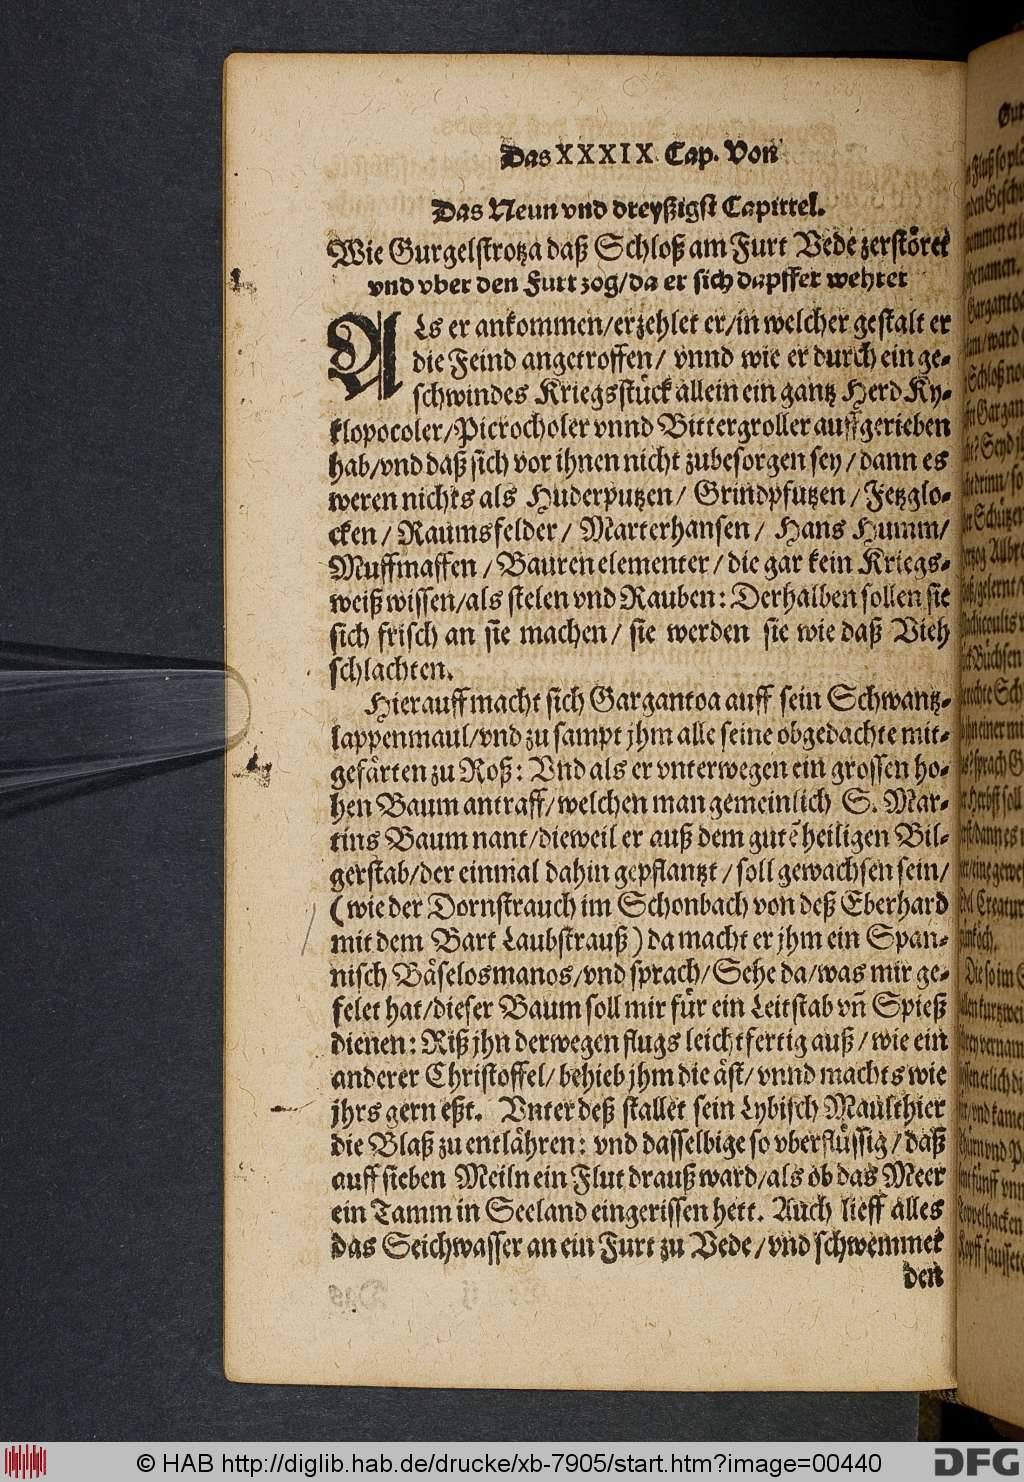 Das XXXIX. Cap. Von
Das Neun vnd dreyßigst Capittel.
Wie Gurgelstrotza daß Schloß am Furt Vede zerstöret
vnd vber den Furt zog/da er sich dapffer wehret
ALs er ankommen/erzehlet er/in welcher gestalt er
die Feind angetroffen/ vnnd wie er durch ein ge-
schwindes Kriegsstück allein ein gantz Herd Ky-
klopocoler/Picrocholer vnnd Bittergroller auffgerieben
hab/vnd daß sich vor ihnen nicht zubesorgen sey/dann es
weren nichts als Huderputzen/ Grindpfutzen/Jetzglo-
cken/ Raumsfelder/ Marterhansen/ Hans Humm/
Muffmaffen/Bauren elementer/die gar kein Kriegs-
weiß wissen/als stelen vnd Rauben: Derhalben sollen sie
sich frisch an sie machen/ sie werden sie wie daß Vieh
schlachten.
Hierauff macht sich Gargantoa auff sein Schwantz-
lappenmaul/vnd zu sampt jhm alle seine obgedachte mit-
gefärten zu Roß: Vnd als er vnterwegen ein grossen ho-
hen Baum antraff/welchen man gemeinlich S. Mar-
tins Baum nant/dieweil er auß dem gutẽ heiligen Bil-
gerstab/der einmal dahin gepflantzt/soll gewachsen sein/
(wie der Dornstrauch im Schonbach von deß Eberhard
mit dem Bart Laubstrauß) da macht er jhm ein Span-
nisch Bäselosmanos/vnd sprach/Sehe da/was mir ge-
felet hat/dieser Baum soll mir für ein Leitstab vñ Spieß
dienen: Riß jhn derwegen flugs leichtfertig auß/wie ein
anderer Christoffel/ behieb jhm die äst/ vnnd machts wie
jhrs gern eßt. Vnter deß stallet sein Lybisch Maulthier
die Blaß zu entlähren: vnd dasselbige so vberflüssig/daß
auff sieben Meiln ein Flut drauß ward/als ob das Meer
ein Tamm in Seeland eingerissen hett. Auch lieff alles
das Seichwasser an ein Furt zu Vede/vnd schwemmet
den
© HAB http://diglib.hab.de/drucke/xb-7905/start.htm?image=00440
DFG